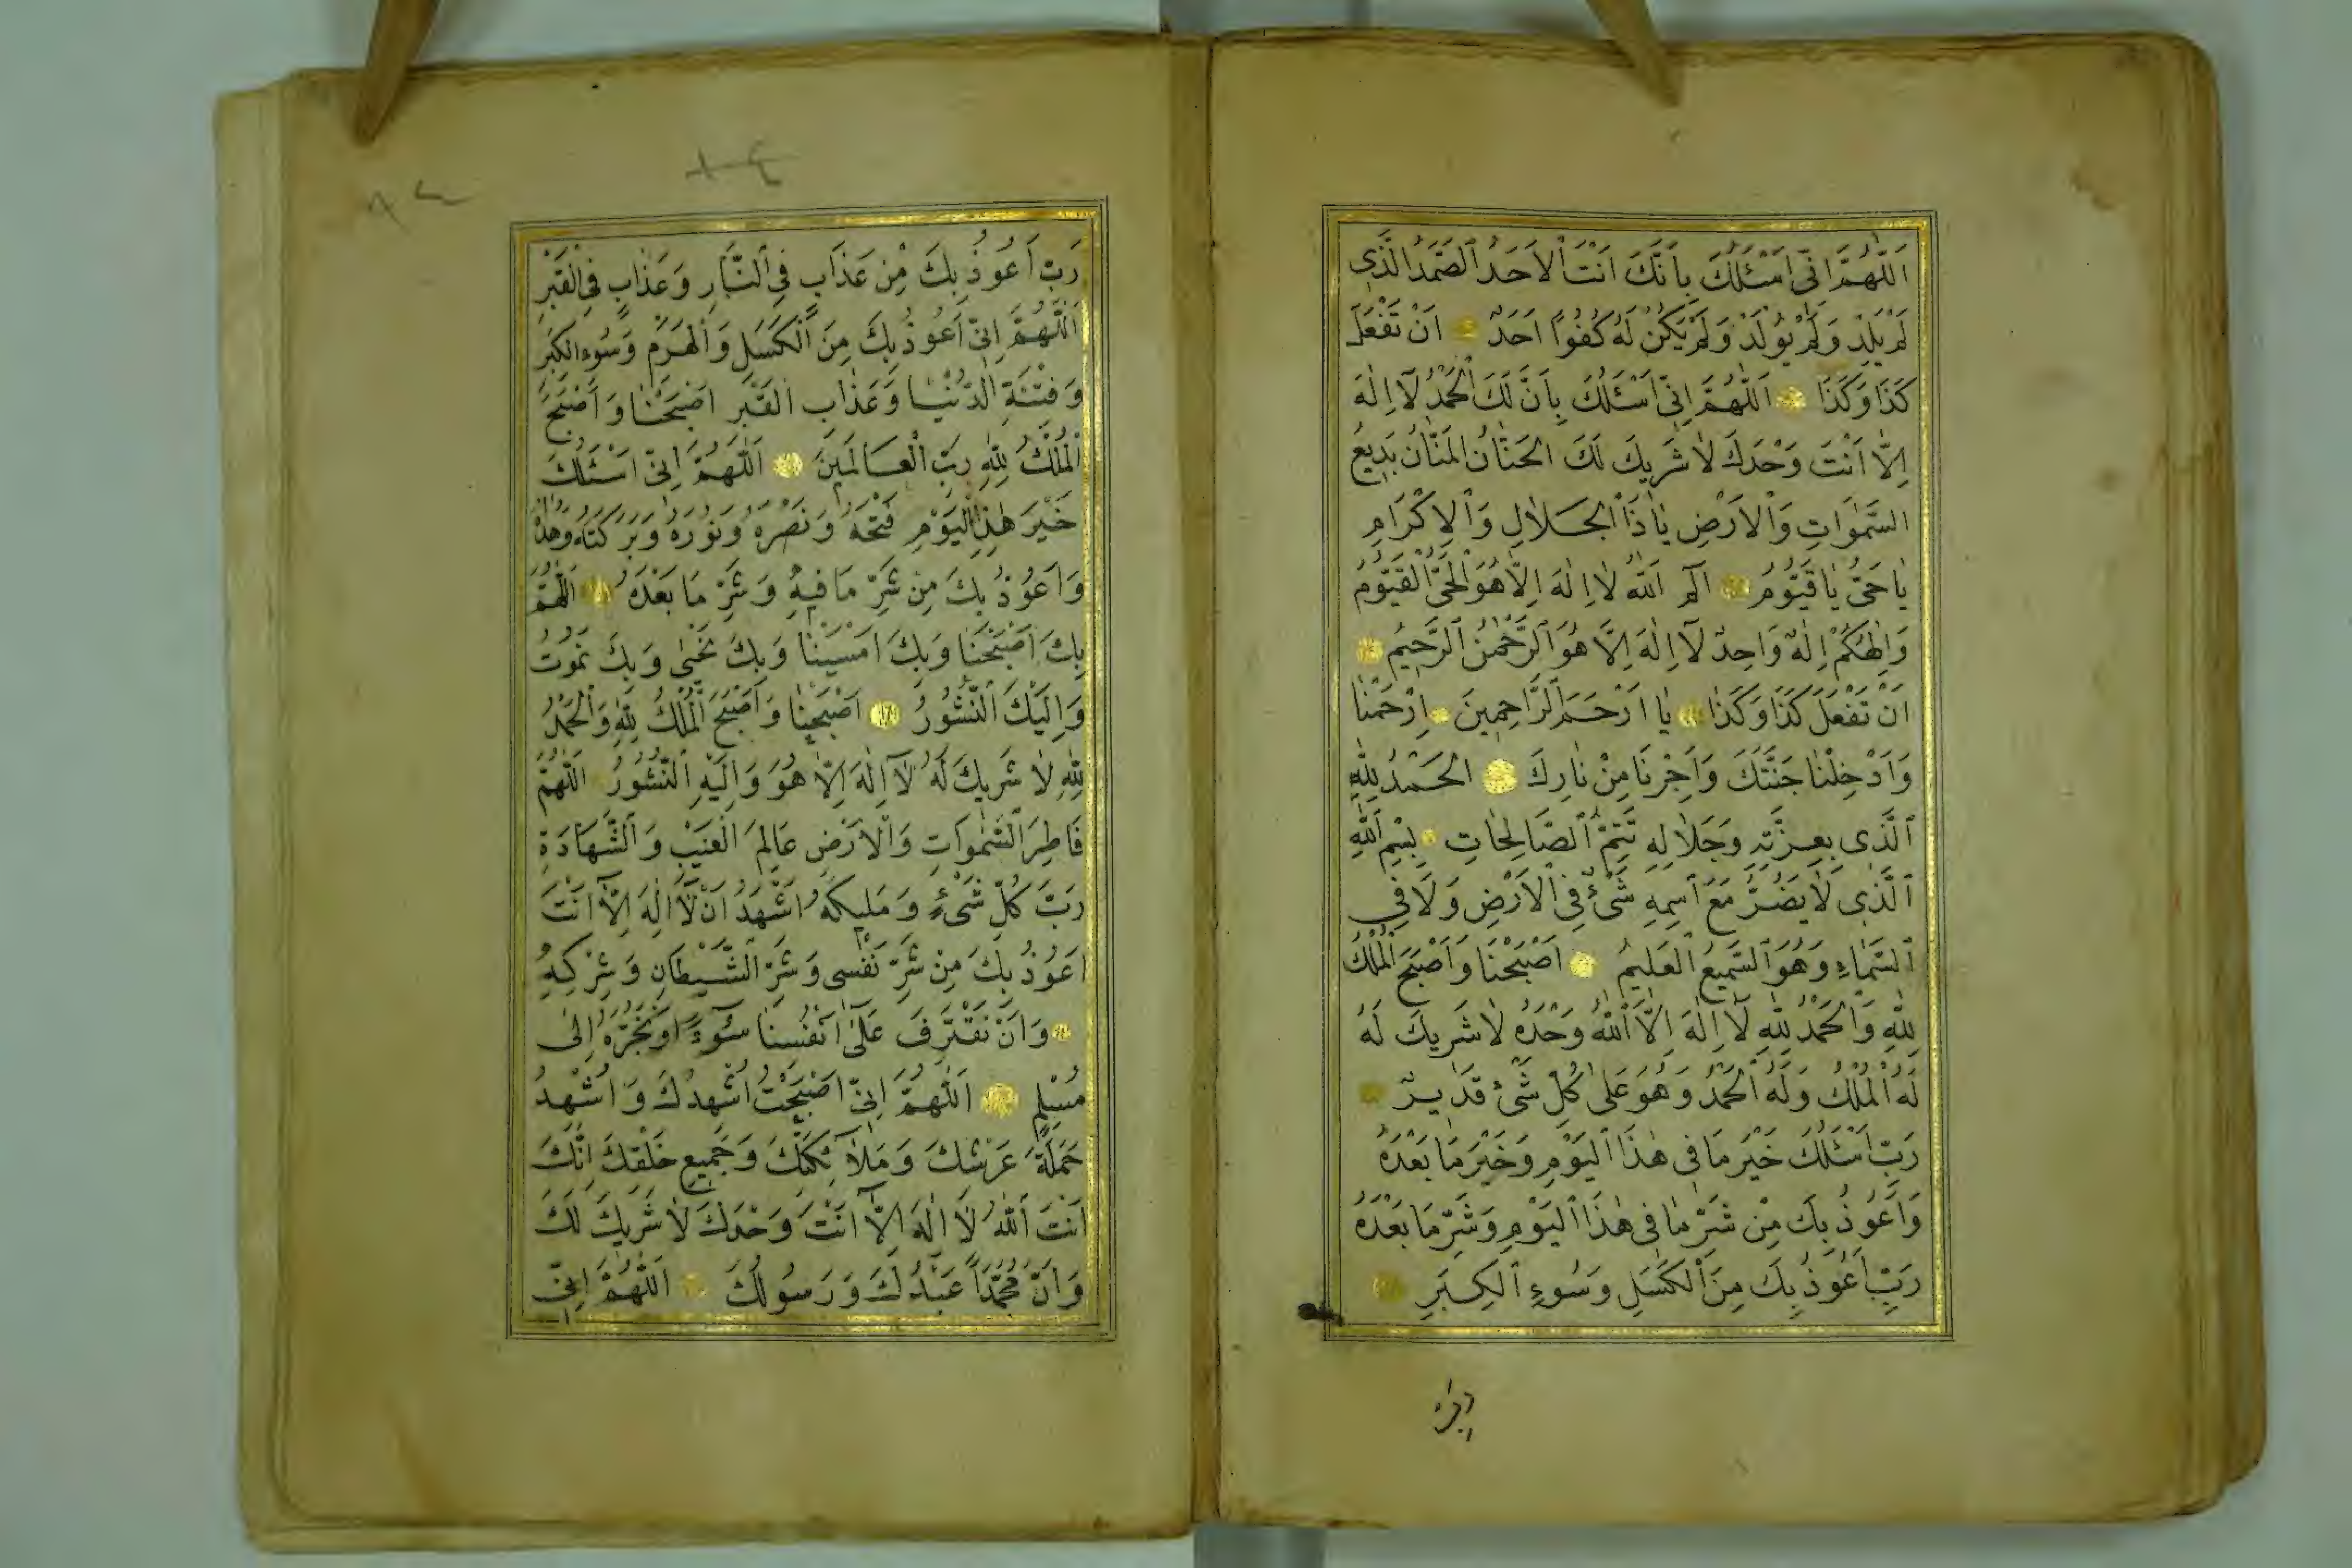 اَللّٰهُمَّ اِنّٖى اَسْئَلُكَ بِاَنَّكَ اَنْتَ الْاَحَدُ الصَّمَدُ الَّذٖى
لَمْ يَلِدْ وَلَمْ يُولَدْ وَلَمْ يَكُنْ لَهُ كُفُوًا اَحَدٌ اَنْ تَفْعَلَ
كَذَا وَكَذَا اَللّٰهُمَّ اِنّٖى اَسْئَلُكَ بِاَنَّ لَكَ الْحَمْدُ لَآ اِلٰهَ
اِلَّا اَنْتَ وَحْدَكَ لَا شَرٖيكَ لَكَ الْحَنَّانُ الْمَنَّانُ بَدٖيعُ
السَّمٰوَاتِ وَالْاَرْضِ يَا ذَا الْجَلَالِ وَالْاِكْرَامِ
يَا حَىُّ يَا قَيُّومُ الٓمٓ اَللّٰهُ لَا اِلٰهَ اِلَّا هُوَ الْحَىُّ الْقَيُّومُ
وَاِلٰهُكُمْ اِلٰهٌ وَاحِدٌ لَآ اِلٰهَ اِلَّا هُوَ الرَّحْمٰنُ الرَّحٖيمُ
اَنْ تَفْعَلَ كَذَا وَكَذَا يَا اَرْحَمَ الرَّاحِمٖينَ اِرْحَمْنَا
وَاَدْخِلْنَا جَنَّتَكَ وَاَجِرْنَا مِنْ نَارِكَ اَلْحَمْدُ لِلّٰهِ
الَّذٖى بِعِزَّتِهٖ وَجَلَالِهٖ تَتِمُّ الصَّالِحَاتِ بِسْمِ اللّٰهِ
الَّذٖى لَا يَضُرُّ مَعَ اسْمِهٖ شَىْءٌ فِى الْاَرْضِ وَلَا فِى
السَّمَاءِ وَهُوَ السَّمٖيعُ الْعَلٖيمُ اَصْبَحْنَا وَاَصْبَحَ الْمُلْكُ
لِلّٰهِ وَالْحَمْدُ لِلّٰهِ لَآ اِلٰهَ اِلَّا اللّٰهُ وَحْدَهُ لَا شَرٖيكَ لَهُ
لَهُ الْمُلْكُ وَلَهُ الْحَمْدُ وَهُوَ عَلٰى كُلِّ شَىْءٍ قَدٖيرٌ
رَبِّ اَسْئَلُكَ خَيْرَ مَا فٖى هٰذَا الْيَوْمِ وَخَيْرَ مَا بَعْدَهُ
وَاَعُوذُ بِكَ مِنْ شَرِّ مَا فٖى هٰذَا الْيَوْمِ وَشَرِّ مَا بَعْدَهُ
رَبِّ اَعُوذُ بِكَ مِنَ الْكَسَلِ وَسُوءِ الْكِبَرِ
رَبِّ اَعُوذُ بِكَ مِنْ عَذَابٍ فِى النَّارِ وَعَذَابٍ فِى الْقَبْرِ
اَللّٰهُمَّ اِنّٖى اَعُوذُ بِكَ مِنَ الْكَسَلِ وَالْهَرَمِ وَسُوءِ الْكِبَرِ
وَفِتْنَةِ الدُّنْيَا وَعَذَابِ الْقَبْرِ اَصْبَحْنَا وَاَصْبَحَ
الْمُلْكُ لِلّٰهِ رَبِّ الْعَالَمٖينَ اَللّٰهُمَّ اِنّٖى اَسْئَلُكَ
خَيْرَ هٰذَا الْيَوْمِ فَتْحَهُ وَنَصْرَهُ وَنُورَهُ وَبَرَكَتَهُ وَهُدَاهُ
وَاَعُوذُ بِكَ مِنْ شَرِّ مَا فٖيهِ وَشَرِّ مَا بَعْدَهُ اَللّٰهُمَّ
بِكَ اَصْبَحْنَا وَبِكَ اَمْسَيْنَا وَبِكَ نَحْيٰى وَبِكَ نَمُوتُ
وَاِلَيْكَ النُّشُورُ اَصْبَحْنَا وَاَصْبَحَ الْمُلْكُ لِلّٰهِ وَالْحَمْدُ
لِلّٰهِ لَا شَرٖيكَ لَهُ لَآ اِلٰهَ اِلَّا هُوَ وَاِلَيْهِ النُّشُورُ اَللّٰهُمَّ
فَاطِرَ السَّمٰوَاتِ وَالْاَرْضِ عَالِمَ الْغَيْبِ وَالشَّهَادَةِ
رَبَّ كُلِّ شَىْءٍ وَمَلٖيكَهُ اَشْهَدُ اَنْ لَآ اِلٰهَ اِلَّا اَنْتَ
اَعُوذُ بِكَ مِنْ شَرِّ نَفْسٖى وَشَرِّ الشَّيْطَانِ وَشِرْكِهٖ
وَاَنْ نَقْتَرِفَ عَلٰى اَنْفُسِنَا سُوءًا اَوْ نَجُرَّهُ اِلٰى
مُسْلِمٍ اَللّٰهُمَّ اِنّٖى اَصْبَحْتُ اُشْهِدُكَ وَاُشْهِدُ
حَمَلَةَ عَرْشِكَ وَمَلَآئِكَتَكَ وَجَمٖيعَ خَلْقِكَ اِنَّكَ
اَنْتَ اللّٰهُ لَا اِلٰهَ اِلَّا اَنْتَ وَحْدَكَ لَا شَرٖيكَ لَكَ
وَاَنَّ مُحَمَّدًا عَبْدُكَ وَرَسُولُكَ اَللّٰهُمَّ اِنّٖى